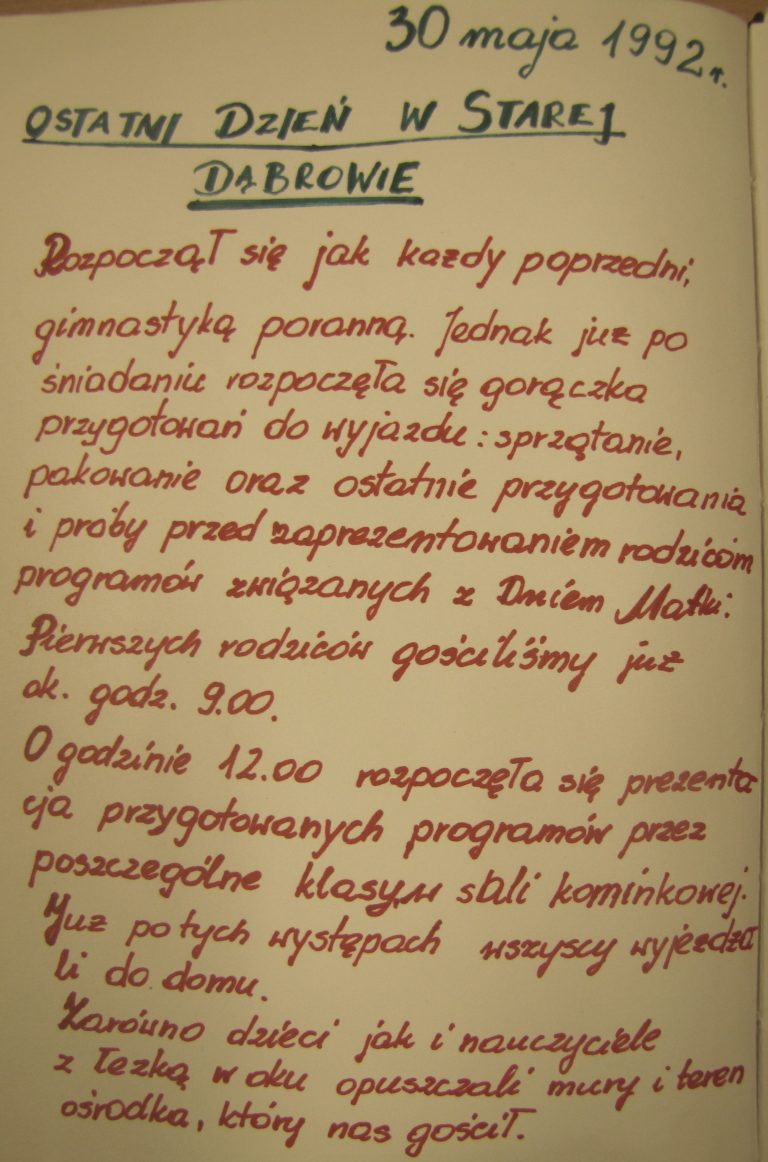 30 maja 1992 r.
OSTATNI DZIEŃ W STAREJ
DĄBROWIE
Rozpoczął się jak każdy poprzedni,
gimnastyką poranną. Jednak już po
śniadaniu rozpoczęła się gorączka
przygotowań do wyjazdu: sprzątanie,
pakowanie oraz ostatnie przygotowania
i próby przed zaprezentowaniem rodzicom
programów związanych z Dniem Matki.
Pierwszych rodziców gościliśmy już
ok. godz. 9.00.
O godzinie 12.00 rozpoczęła się prezenta
cja przygotowanych programów przez
poszczególne klasy w sali kominkowej.
Już po tych występach wszyscy wyjeżdża
li do domu.
Zarówno dzieci jak i nauczyciele
z łezką w oku opuszczali mury i teren
ośrodka, który nas gościł.